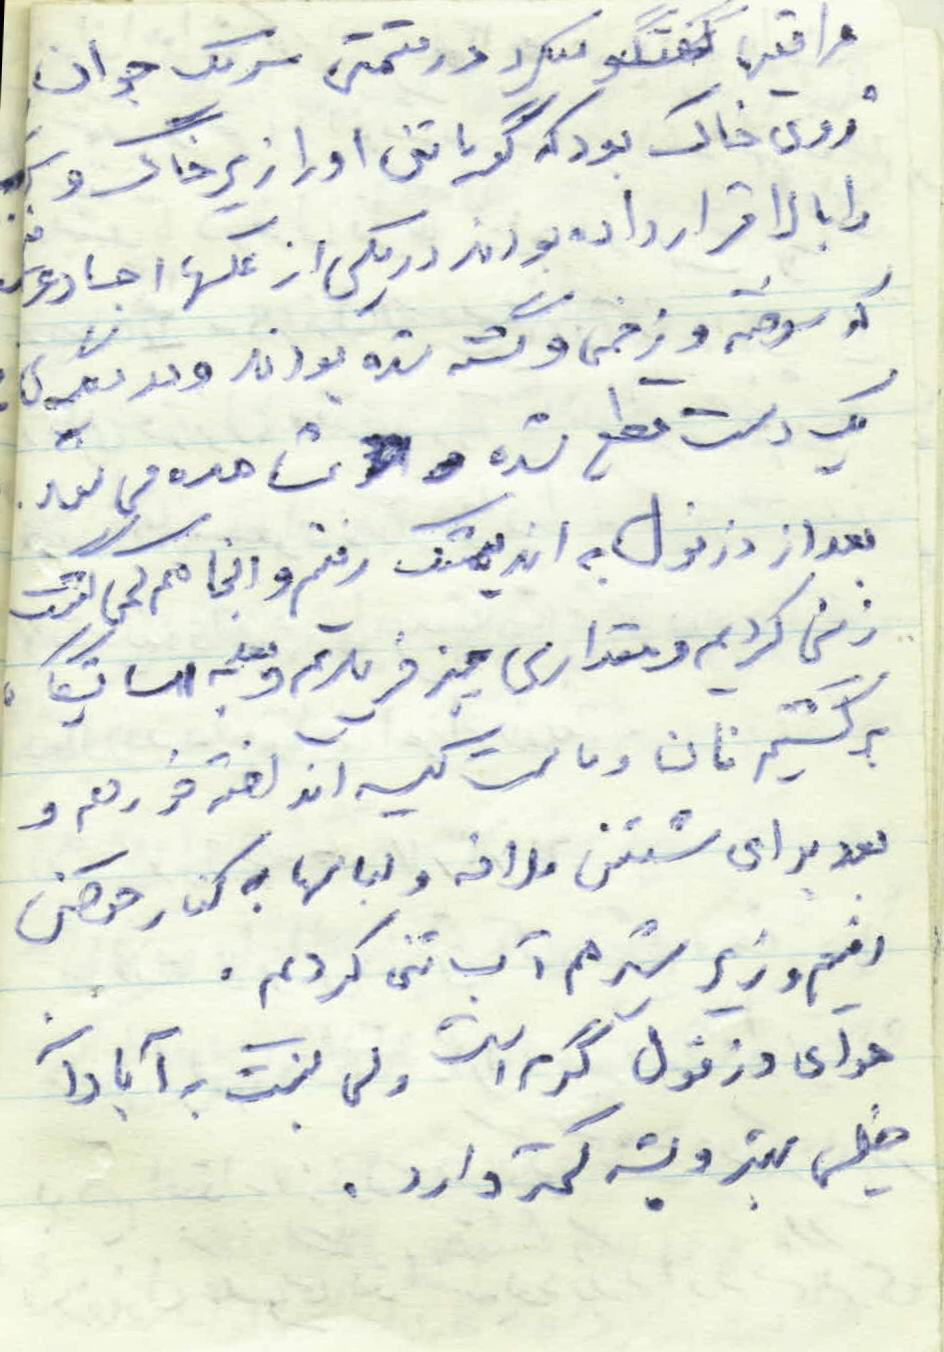 عراقیها گفتگو میکرد در قسمتی سر یک جوان
روی خاک بود که گویا تن او را زیر خاک و
را بالا قرار داده بودند در یکی از عکسها اجساد
که سوخته و زخمی و کشته شده بودند و در
یک دست قطع شده مشاهده می شد.
بعد از دزفول به اندیمشک رفتیم و آنجا هم کمی گشت
زنی کردیم و مقداری چیز خریدیم و بعد به سایت
برگشتیم نان و ماست کیسه انداخته خوردیم و
بعد برای شستن ملافه و لباسها به کنار حوض
رفتیم و زیر شیر هم آب تنی کردیم.
هوای دزفول گرم است ولی نسبت به آبادان
خیلی بهتر و پشه کمتر دارد.